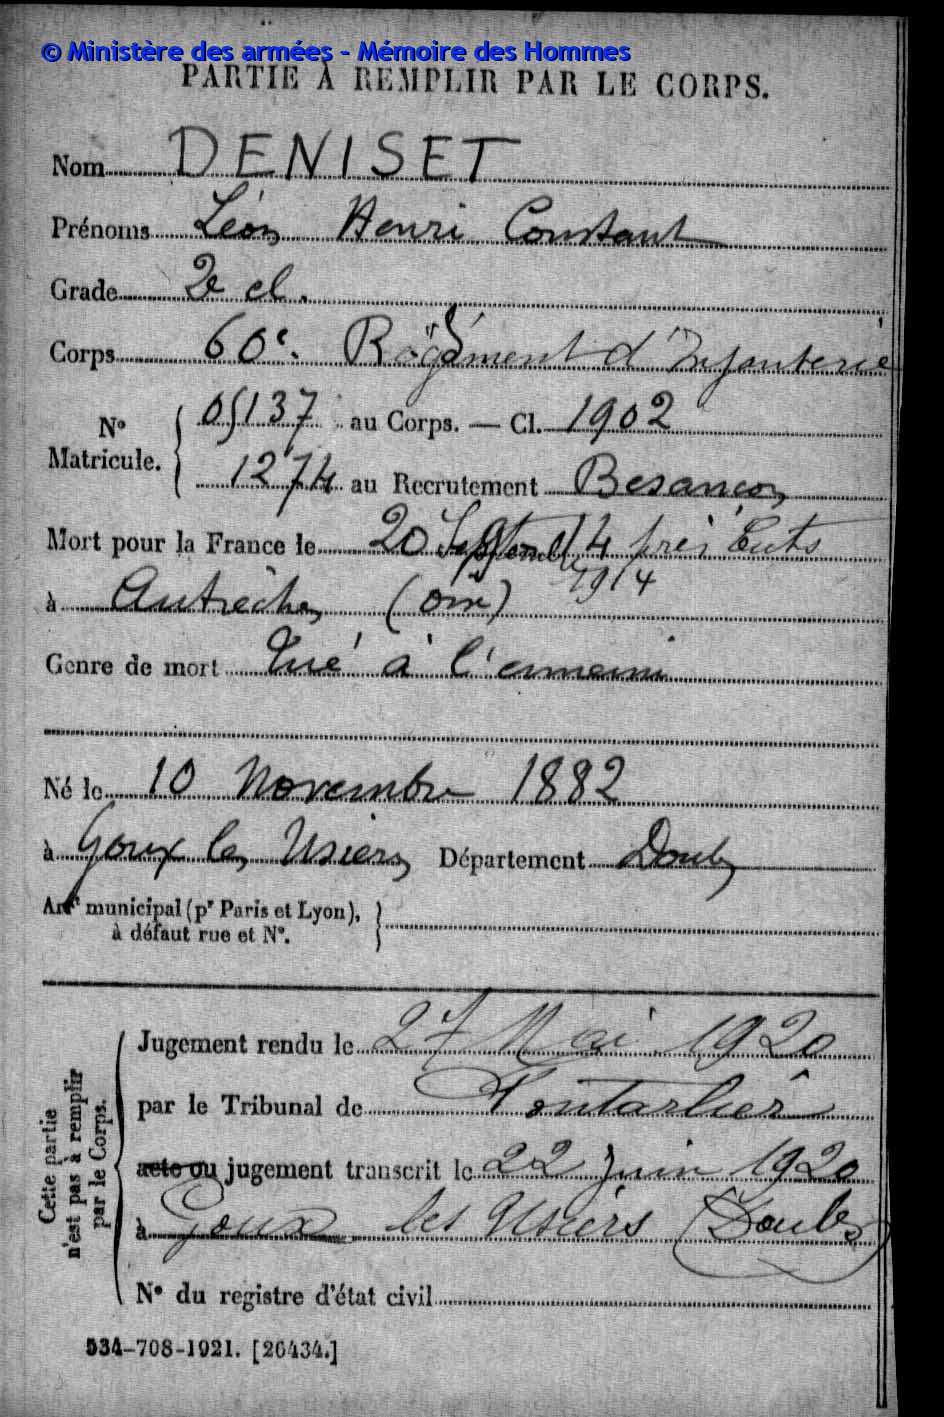 © Ministère des armées - Mémoire des Hommes
PARTIE À REMPLIR PAR LE CORPS.
Nom DENISET
Prénoms Léon Henri Constant
Grade 2e cl.
Corps 60e. Régiment d'Infanterie
No Matricule. { 05137 au Corps. — Cl. 1902
1274 au Recrutement Besançon
Mort pour la France le 20 Septembre 14 près Cuts
1914
à Autrèches (Oise)
Genre de mort Tué à l'ennemi
Né le 10 Novembre 1882
à Goux les Usiers Département Doubs
Arrt municipal (pr Paris et Lyon), }
à défaut rue et No.
Cette partie
n'est pas à remplir
par le Corps.
Jugement rendu le 27 Mai 1920
par le Tribunal de Pontarlier
acte ou jugement transcrit le 22 juin 1920
à Goux les Usiers (Doubs)
No du registre d'état civil
534-708-1921. [26434.]